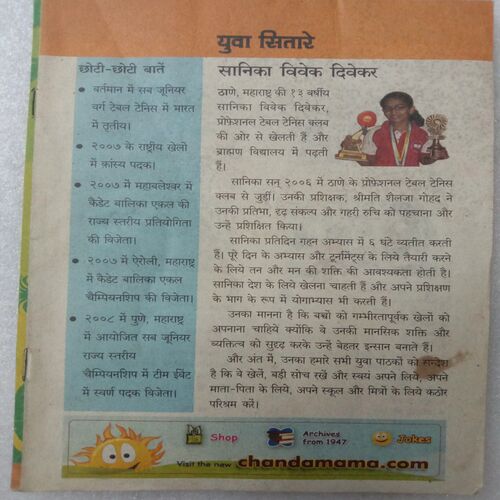 युवा सितारे
छोटी-छोटी बातें
वर्तमान में सब जूनियर
वर्ग टेबल टेनिस में भारत
में तृतीय।
२००७ के राष्ट्रीय खेलों
में कांस्य पदक।
२००७ में महाबलेश्वर में
कैडेट बालिका एकल की
राज्य स्तरीय प्रतियोगिता
की विजेता।
२००७ में ऐरोली, महाराष्ट्र
में कैडेट बालिका एकल
चैम्पियनशिप की विजेता।
२००८ में पुणे, महाराष्ट्र
में आयोजित सब जूनियर
राज्य स्तरीय
चैम्पियनशिप में टीम ईवेंट
में स्वर्ण पदक विजेता।
सानिका विवेक दिवेकर
ठाणे, महाराष्ट्र की १३ वर्षीय
सानिका विवेक दिवेकर,
प्रोफ़ेशनल टेबल टेनिस क्लब
की ओर से खेलती हैं और
ब्राह्मण विद्यालय में पढ़ती
हैं।
सानिका सन् २००६ में ठाणे के प्रोफ़ेशनल टेबल टेनिस
क्लब से जुड़ीं। उनकी प्रशिक्षक, श्रीमति शैलजा गोहद ने
उनकी प्रतिभा, दृढ़ संकल्प और गहरी रुचि को पहचाना और
उन्हे प्रशिक्षित किया।
सानिका प्रतिदिन गहन अभ्यास में ६ घंटे व्यतीत करती
हैं। पूरे दिन के अभ्यास और टूर्नामेंट्स के लिये तैयारी करने
के लिये तन और मन की शक्ति की आवश्यकता होती है।
सानिका देश के लिये खेलना चाहती हैं और अपने प्रशिक्षण
के भाग के रूप में योगाभ्यास भी करती हैं।
उनका मानना है कि बच्चों को गम्भीरतापूर्वक खेलों को
अपनाना चाहिये क्योंकि वे उनकी मानसिक शक्ति और
व्यक्तित्व को सुदृढ़ करके उन्हे बेहतर इन्सान बनाते हैं।
और अंत में, उनका हमारे सभी युवा पाठकों को सन्देश
है कि वे खेलें, बड़ी सोच रखें और स्वयं अपने लिये, अपने
माता-पिता के लिये, अपने स्कूल और मित्रों के लिये कठोर
परिश्रम करें।
Shop
Archives
from 1947
Jokes
Visit the new chandamama.com